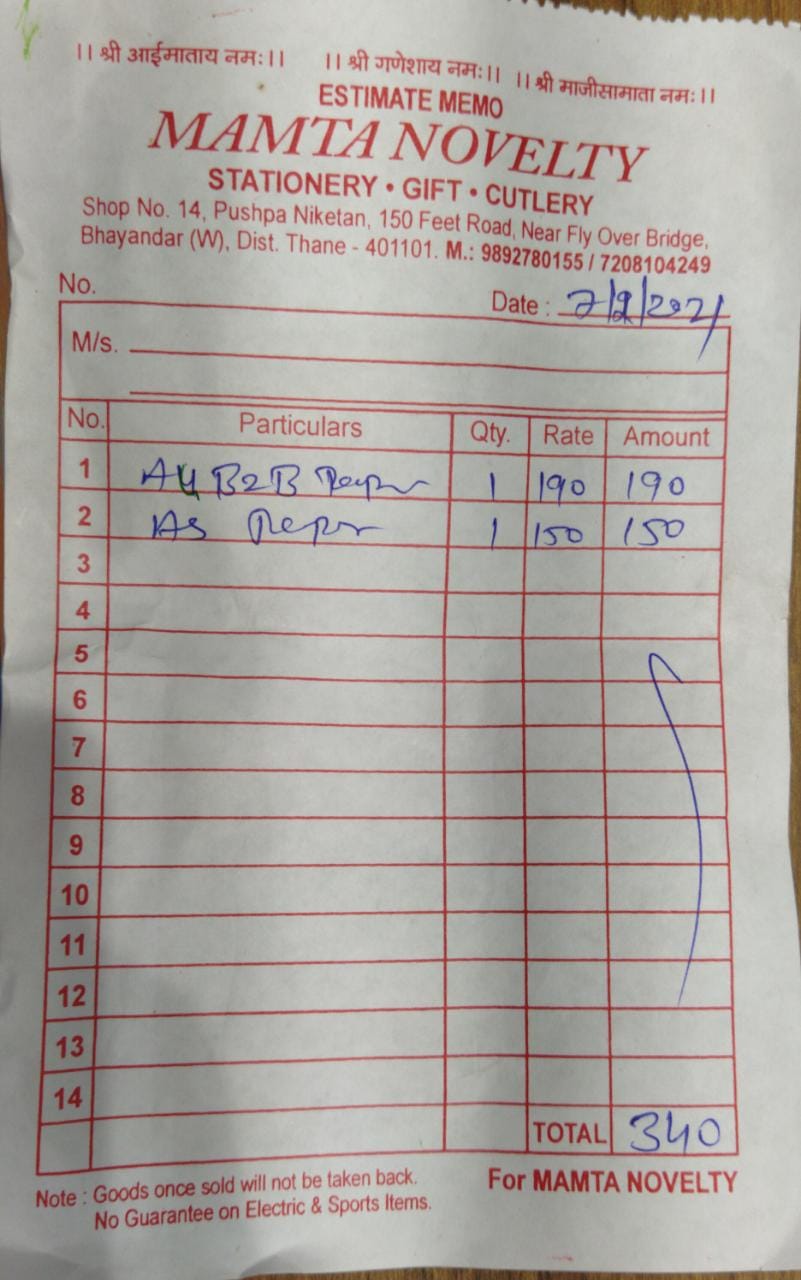 ।। श्री आईमाताय नमः।। ।। श्री गणेशाय नमः।। ।। श्री माजीसामाता नमः।।
ESTIMATE MEMO
MAMTA NOVELTY
STATIONERY • GIFT • CUTLERY
Shop No. 14, Pushpa Niketan, 150 Feet Road, Near Fly Over Bridge,
Bhayandar (W), Dist. Thane - 401101. M.: 9892780155 / 7208104249
No.
Date : 7/9/2021
M/s.
No. Particulars Qty. Rate Amount
1 A4 B2B Paper 1 190 190
2 Paper 1 150 150
3
4
5
6
7
8
9
10
11
12
13
14
TOTAL 340
Note : Goods once sold will not be taken back. For MAMTA NOVELTY
No Guarantee on Electric & Sports Items.